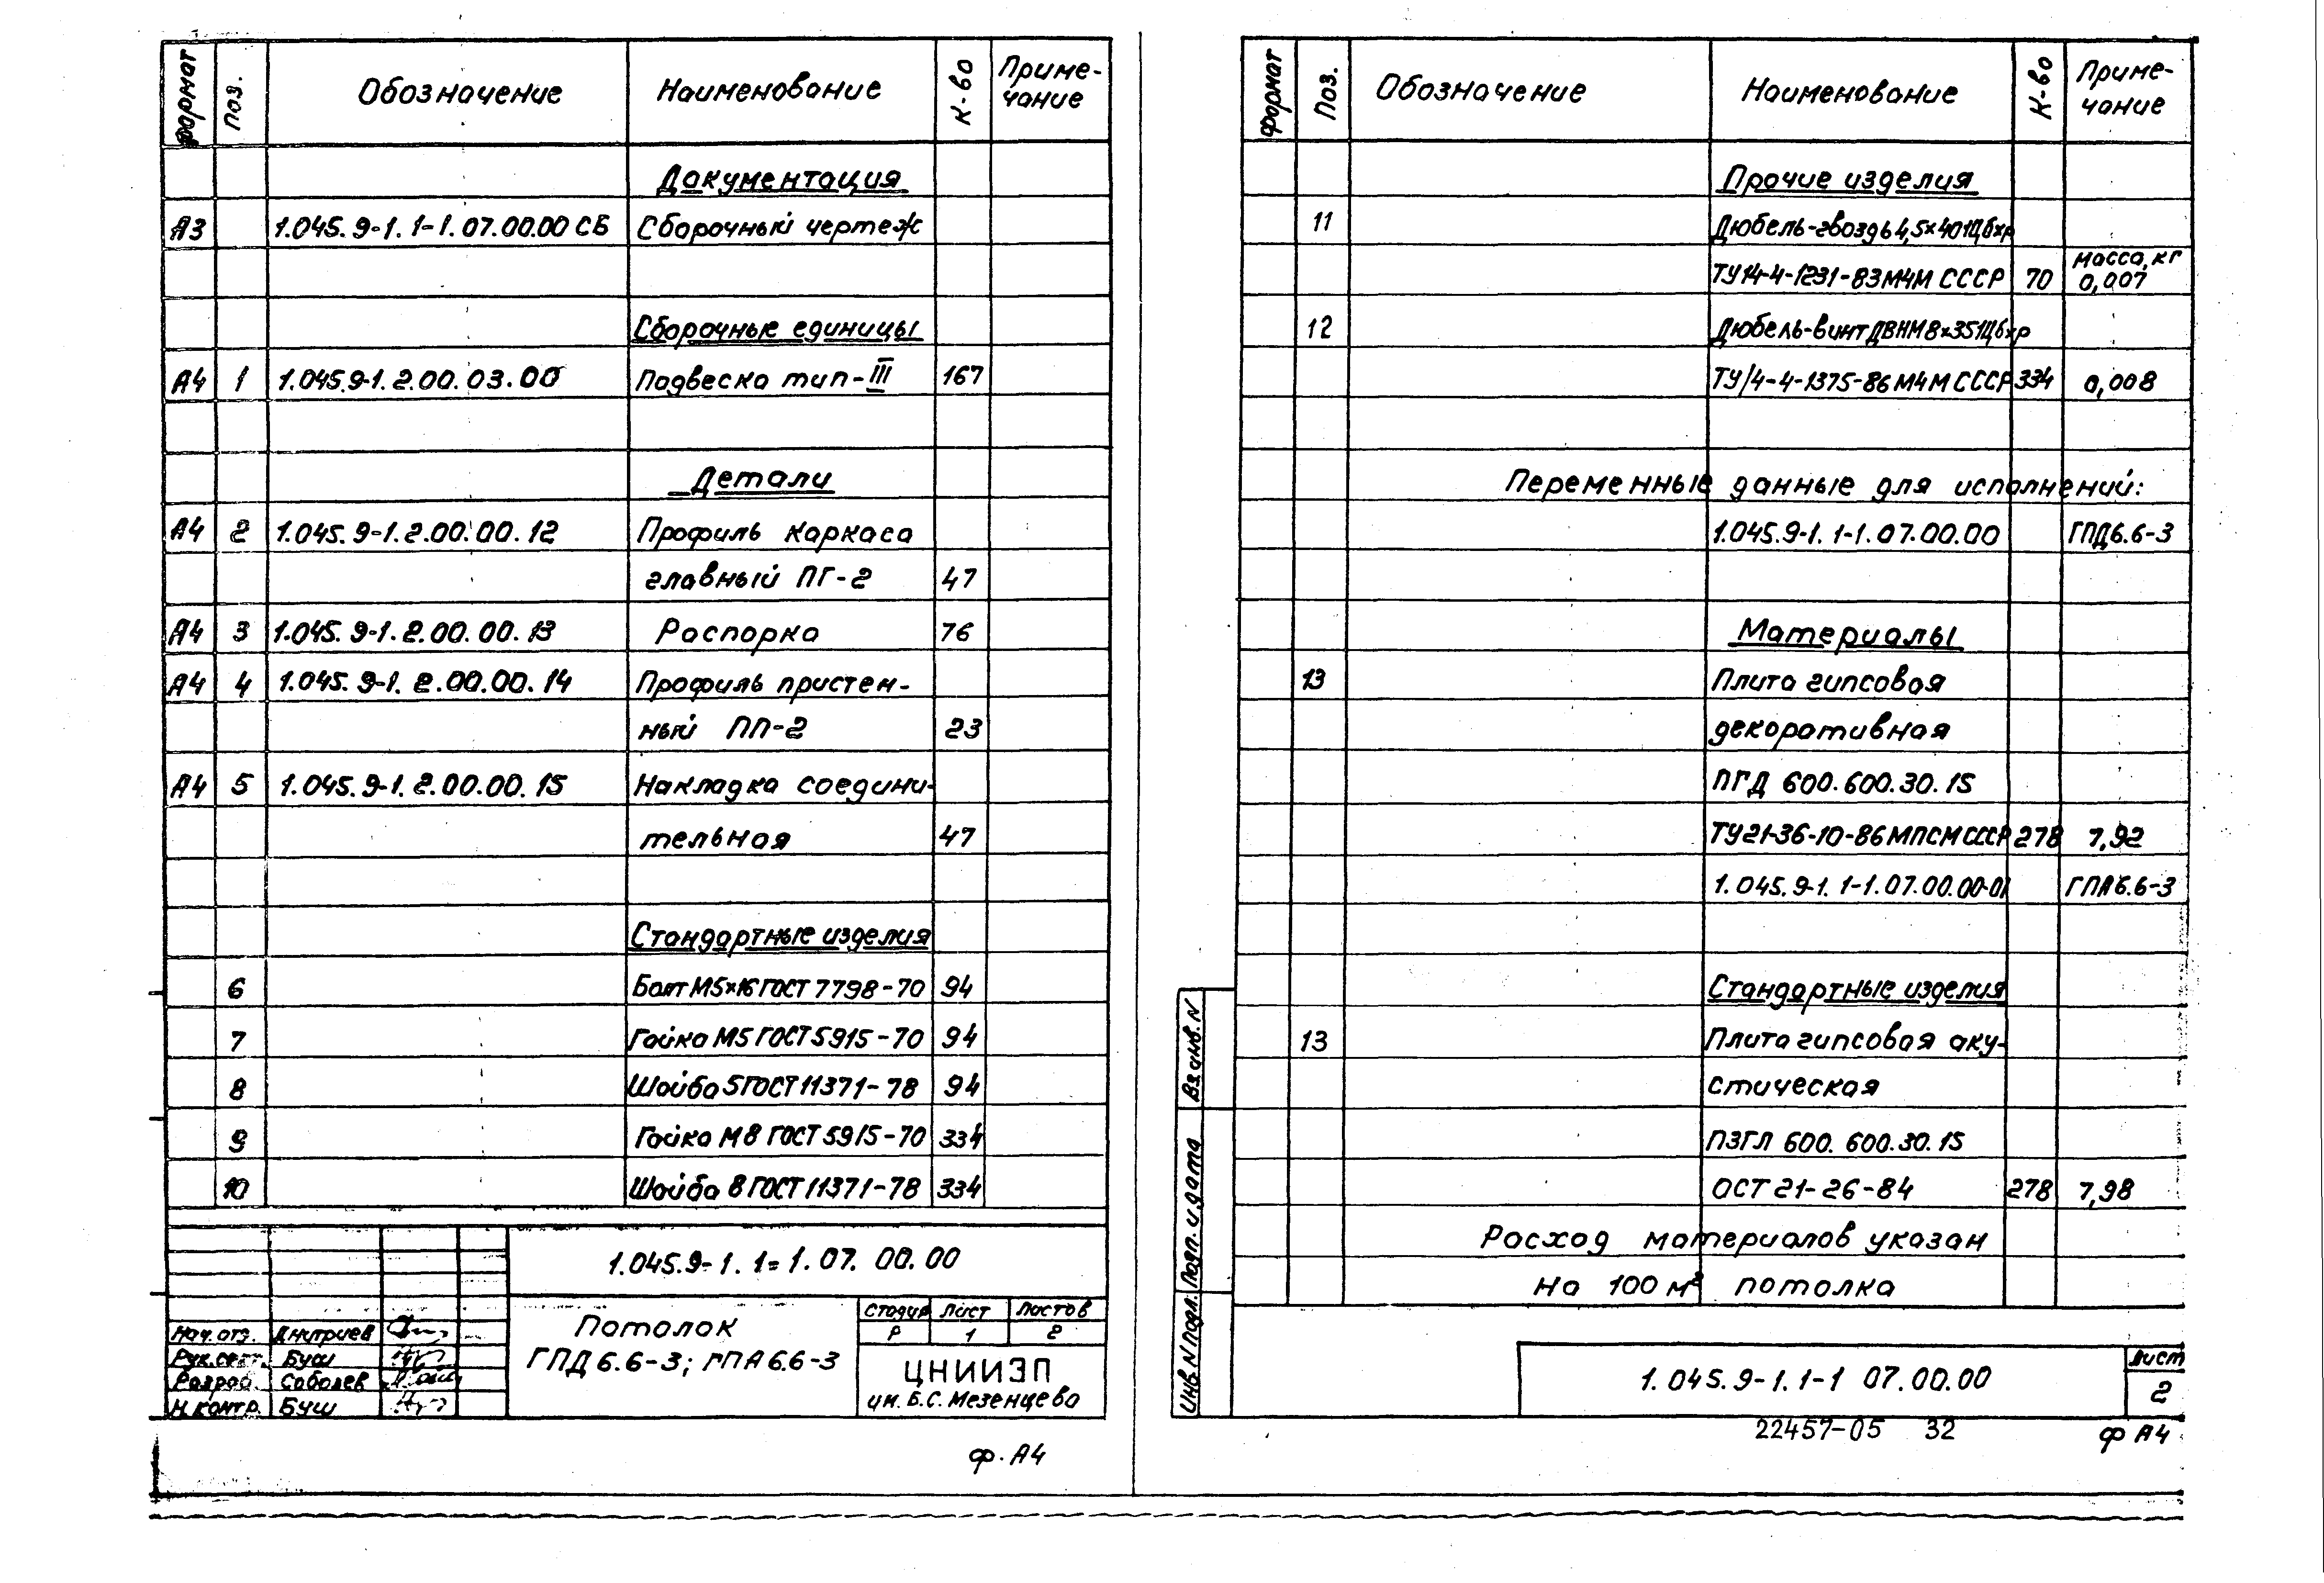 формат
поз.
Обозначение
Наименование
К-во
Приме-
чание
Документация
А3 1.045.9-1.1-1.07.00.00 СБ Сборочный чертеж
Сборочные единицы
А4 1 1.045.9-1.2.00.03.00 Подвеска тип-III 167
Детали
А4 2 1.045.9-1.2.00.00.12 Профиль каркаса
главный ПГ-2 47
А4 3 1.045.9-1.2.00.00.13 Распорка 76
А4 4 1.045.9-1.2.00.00.14 Профиль пристен-
ный ПП-2 23
А4 5 1.045.9-1.2.00.00.15 Накладка соедини-
тельная 47
Стандартные изделия
6 Болт М5×16 ГОСТ 7798-70 94
7 Гайка М5 ГОСТ 5915-70 94
8 Шайба 5 ГОСТ 11371-78 94
9 Гайка М8 ГОСТ 5915-70 334
10 Шайба 8 ГОСТ 11371-78 334
1.045.9-1.1-1.07.00.00
Потолок
ГПД 6.6-3; ГПА 6.6-3
Стадия Лист Листов
Р 1 2
ЦНИИЭП
им. Б.С. Мезенцева
Нач. отд. Дмитриев
Рук. сект. Буш
Разраб. Соболев
Н. контр. Буш
ф. А4
формат
Поз.
Обозначение
Наименование
К-во
Приме-
чание
Прочие изделия
11 Дюбель-гвоздь 4,5×40 Ц6хр
ТУ14-4-1231-83 МЧМ СССР 70 масса, кг 0,007
12 Дюбель-винт ДВН М8×35 Ц6хр
ТУ14-4-1375-86 МЧМ СССР 334 0,008
Переменные данные для исполнений:
1.045.9-1.1-1.07.00.00 ГПД 6.6-3
Материалы
13 Плита гипсовая
декоративная
ПГД 600.600.30.15
ТУ21-36-10-86 МПСМ СССР 278 7,92
1.045.9-1.1-1.07.00.00-01 ГПА 6.6-3
Стандартные изделия
13 Плита гипсовая аку-
стическая
ПЗГЛ 600.600.30.15
ОСТ 21-26-84 278 7,98
Расход материалов указан
на 100 м² потолка
Взаим. N
Подп. и дата
Инв. N подл.
1.045.9-1.1-1 07.00.00
Лист
2
22457-05 32
ф А4